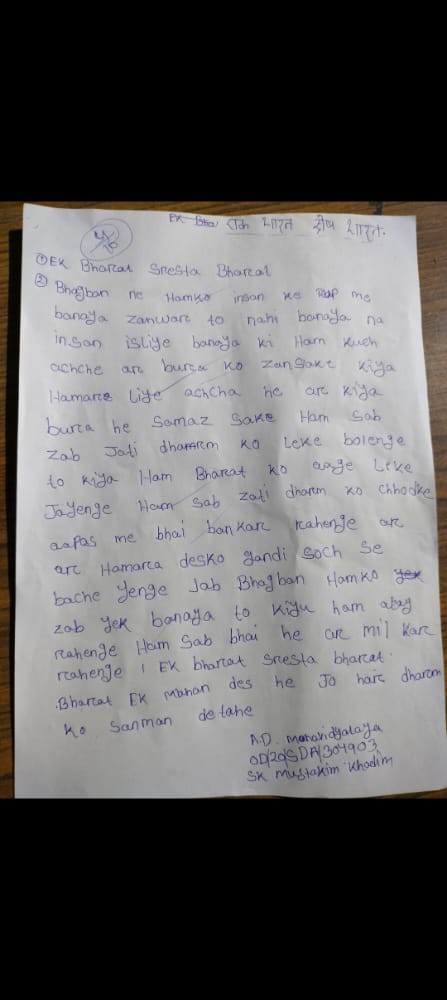 एक भारत श्रेष्ठ भारत.
① EK Bharat Sresta Bharat
② Bhagban ne Hamko insan ke Roop me
banaya zanwar to nahi banaya na
insan isliye banaya ki Ham kuch
achche ar bura ko zansake kiya
Hamare Liye achcha he ar kiya
bura he Samaz sake Ham sab
zab Jati dharm ko Leke bolenge
to kiya Ham Bharat ko aage Leke
Jayenge Ham sab zati dharm ko chhodke
aapas me bhai bankar rahenge ar
ar Hamara desko gandi soch se
bache yenge Jab Bhagban Hamko
zab yek banaya to kiyu ham alag
rahenge Ham Sab bhai he ar mil kar
rahenge । EK bharat sresta bharat.
. Bharat EK mahan des he Jo har dharm
ko sanman detahe
A.D. mahavidyalaya
OD/20/SDA/304903
SK mustakim khadim